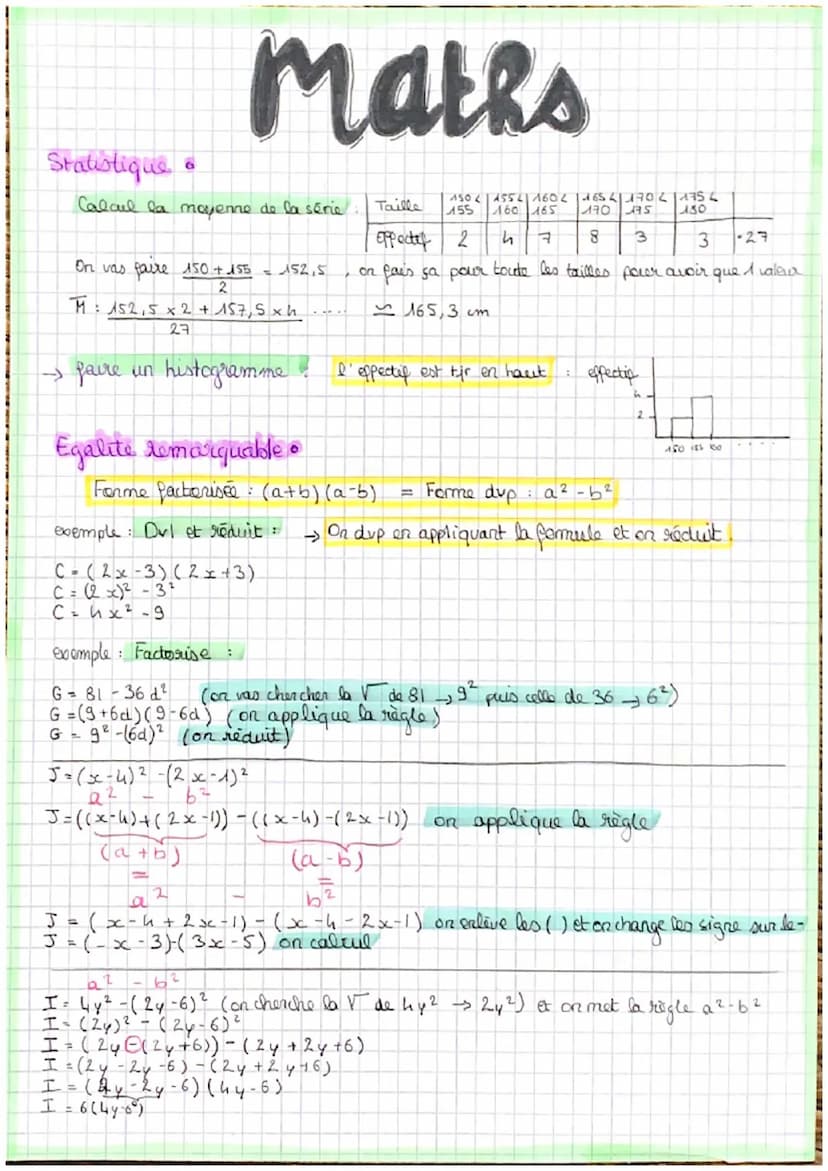 Maths
Statistique :
Calcul la moyenne de la série : Taille 150< 155 155< 160 160< 165 165< 170 170< 175 175< 180
Effectif 2 4 7 8 3 3 =27
On vas faire 150 + 155 / 2 = 152,5 , on fais ça pour toute les tailles pour avoir que 1 valeur
M : 152,5 x 2 + 157,5 x 4 ..... / 27 ≃ 165,3 cm
→ faire un histogramme : l'effectif est tjr en haut : effectif
4
2
150 155 160 . . . .
Egalité remarquable :
Forme factorisée : (a+b)(a-b) = Forme dvp : a² - b²
exemple : Dvl et réduit : → On dvp en appliquant la formule et on réduit.
C = (2x-3)(2x+3)
C = (2x)² - 3²
C = 4x² - 9
exemple : Factorise :
G = 81 - 36d² (on vas chercher la √ de 81 → 9² puis celle de 36 → 6²)
G = (9+6d)(9-6d) (on applique la règle)
G = 9² -(6d)² (on réduit)
J = (x-4)² -(2x-1)²
a² - b²
J = ((x-4)+(2x-1)) - ((x-4)-(2x-1)) on applique la règle
(a+b) (a-b)
= =
a² - b²
J = (x-4+2x-1) - (x-4-2x-1) on enlève les ( ) et on change les signe sur le -
J = (-x-3)-(3x-5) on calcul
a² - b²
I = 4y² -(2y-6)² (on cherche la √ de 4y² → 2y²) et on met la règle a²-b²
I = (2y)² - (2y-6)²
I = (2y-(2y+6)) - (2y+2y+6)
I = (2y-2y-6) -(2y+2y+6)
I = (2y-2y-6)(4y-6)